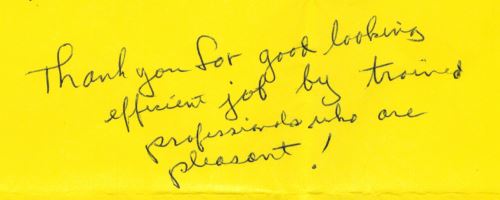 Thank you for good looking
efficient job by trained
professionals who are
pleasant!